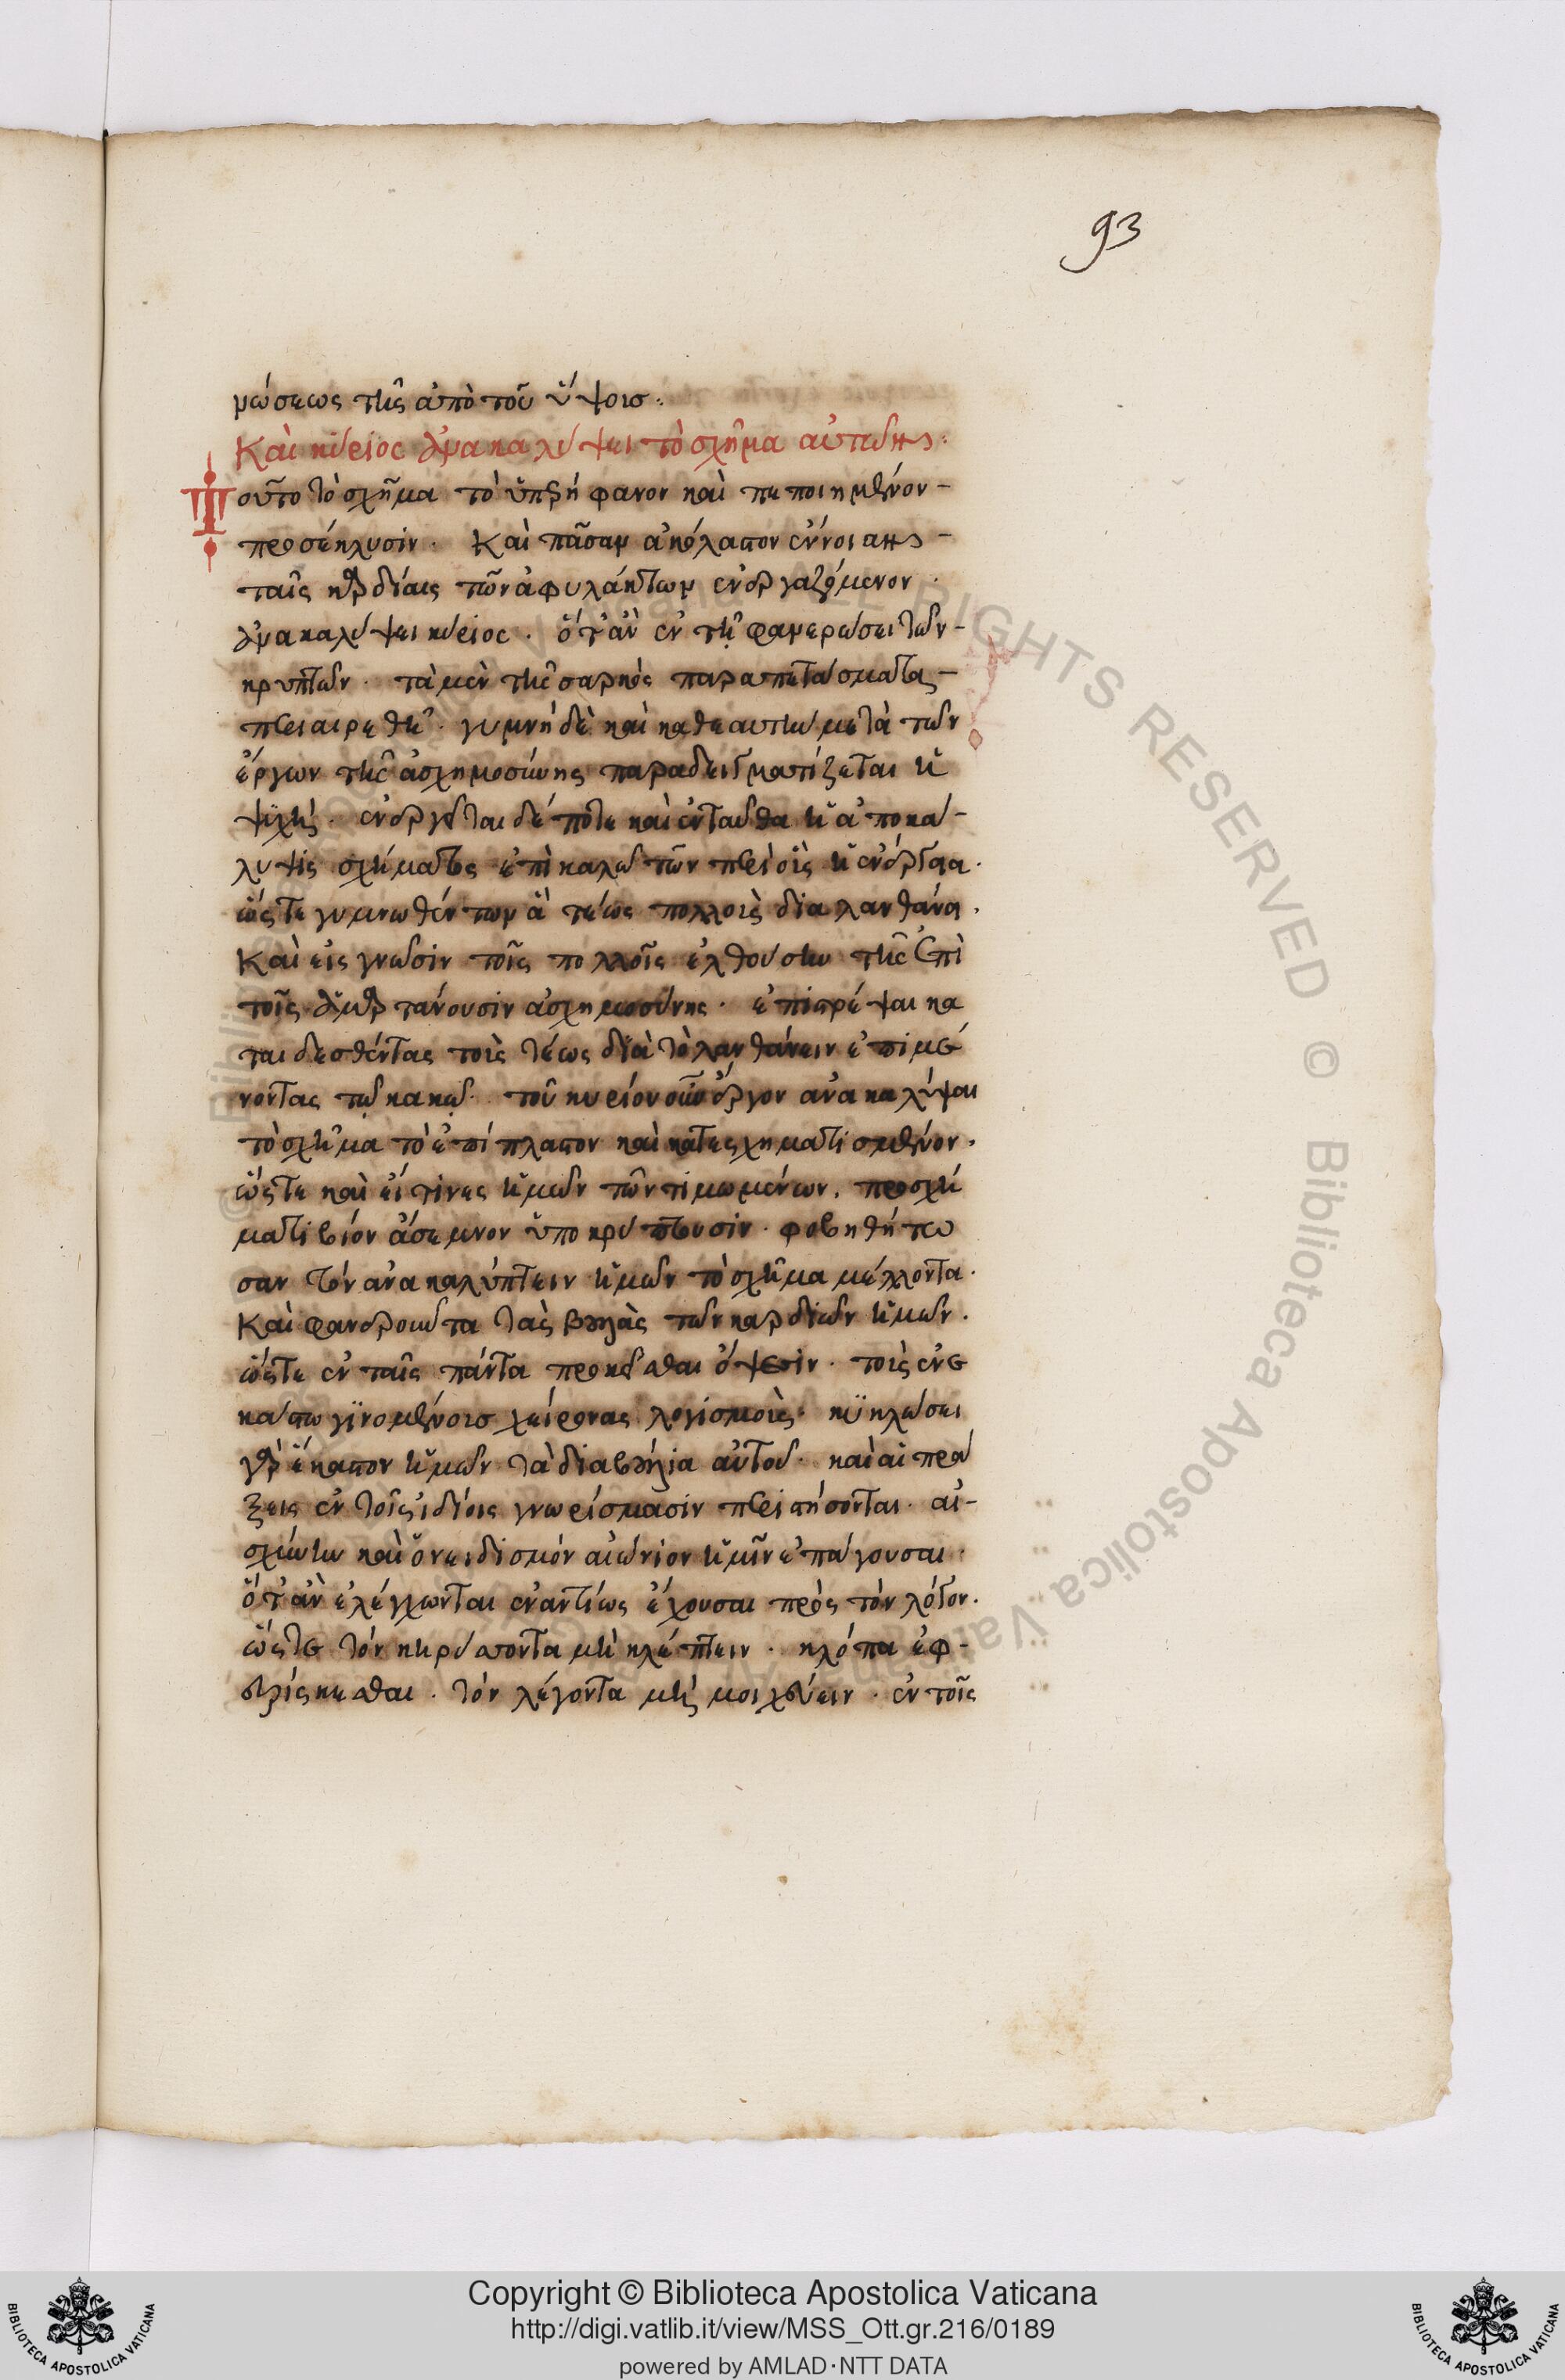 93
μώσεως τῆς ἀπὸ τοῦ ὕψους.
Καὶ κύριος ἀνακαλύψει τὸ σχῆμα αὐτῶν.
Τοῦτο τὸ σχῆμα τὸ ὑπερήφανον καὶ πεποιημένον
προσέκλυσιν. Καὶ πᾶσαν ἀκόλαστον ἔννοιαν
ταῖς καρδίαις τῶν ἀφυλάκτων ἐνεργαζόμενον.
ἀνακαλύψει κύριος. ὅτ' ἂν ἐν τῇ φανερώσει τῶν
κρυπτῶν. τὰ μὲν τῆς σαρκὸς παραπετάσματα
περιαιρεθῇ. γυμνὴ δὲ καὶ καθεαυτὴν μετὰ τῶν
ἔργων τῆς ἀσχημοσύνης παραδειγματίζεται ἡ
ψυχή. ἐνεργεῖται δέ ποτε καὶ ἐνταῦθα ἡ ἀποκά-
λυψις σχήματος ἐπὶ καλῷ τῶν περὶ οἷς ἡ ἐνέργεια.
ὥστε γυμνωθέντων ἃ τέως πολλοὺς διαλανθάνει.
Καὶ εἰς γνῶσιν τοῖς πολλοῖς ἐλθούσην τῆς ἐπὶ
τοῖς ἁμαρτάνουσιν ἀσχημοσύνης. ἐπιστρέψαι κα
ταιδεσθέντας τοὺς τέως διὰ τὸ λανθάνειν ἐπιμέ
νοντας τῷ κακῷ. τοῦ κυρίου οὖν ἔργον ἀνακαλύψαι
τὸ σχῆμα τὸ ἐπίπλαστον καὶ κατεσχηματισμένον.
ὥστε καὶ εἴ τινες ἡμῶν τῶν τιμωμένων. προσχή
ματι βίον ἄσεμνον ὑποκρύπτουσιν. φοβηθήτω
σαν τὸν ἀνακαλύπτειν ἡμῶν τὸ σχῆμα μέλλοντα.
Καὶ φανεροῦντα τὰς βουλὰς τῶν καρδιῶν ἡμῶν.
ὥστε ἐν ταῖς πάντα προκεῖσθαι ὄψεσιν. τοὺς ἐν ἑ
κάστῳ γινομένους χείρονας λογισμούς. κυκλώσει
γὰρ ἕκαστον ἡμῶν τὰ διαβούλια αὐτοῦ. καὶ αἱ πρά
ξεις ἐν τοῖς ἰδίοις γνωρίσμασιν περιστήσονται. αἰ-
σχύνην καὶ ὀνειδισμὸν αἰώνιον ἡμῖν ἐπάγουσαι.
ὅτ' ἂν ἐλέγχωνται ἐναντίως ἔχουσαι πρὸς τὸν λόγον.
ὥστε τὸν κηρύσσοντα μὴ κλέπτειν. κλόπα ἐφ-
ευρίσκεσθαι. τὸν λέγοντα μὴ μοιχεύειν. ἐν τοῖς
© Biblioteca Apostolica Vaticana
RIGHTS RESERVED © Biblioteca Apostolica Vaticana
Copyright © Biblioteca Apostolica Vaticana
http://digi.vatlib.it/view/MSS_Ott.gr.216/0189
powered by AMLAD·NTT DATA
BIBLIOTECA APOSTOLICA VATICANA
BIBLIOTECA APOSTOLICA VATICANA